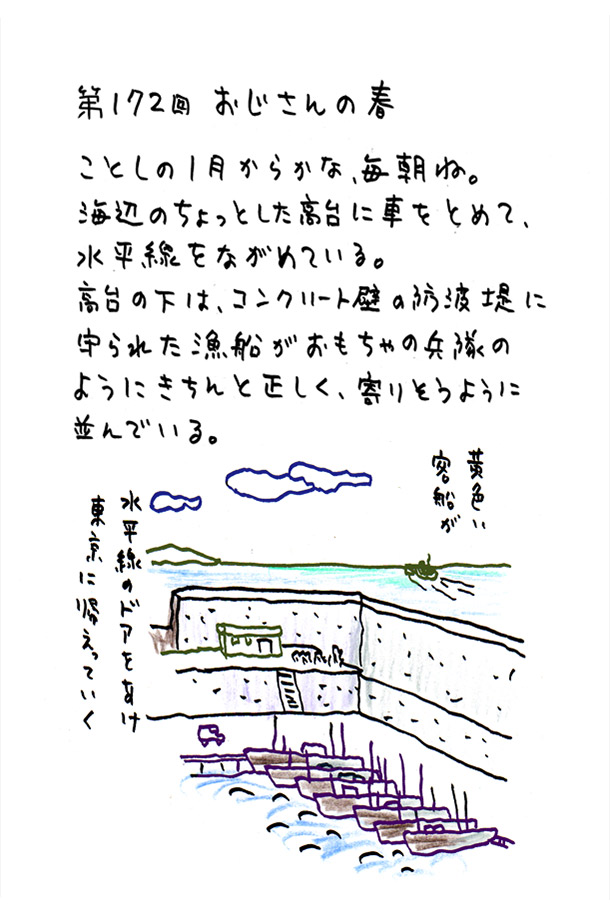 第172回 おじさんの春
ことしの1月からかな、毎朝ね。
海辺のちょっとした高台に車をとめて、
水平線をながめている。
高台の下は、コンクリート壁の防波堤に
守られた漁船がおもちゃの兵隊の
ようにきちんと正しく、寄りそうように
並んでいる。
黄色い
客船が
水平線のドアをあけ
東京に帰えっていく